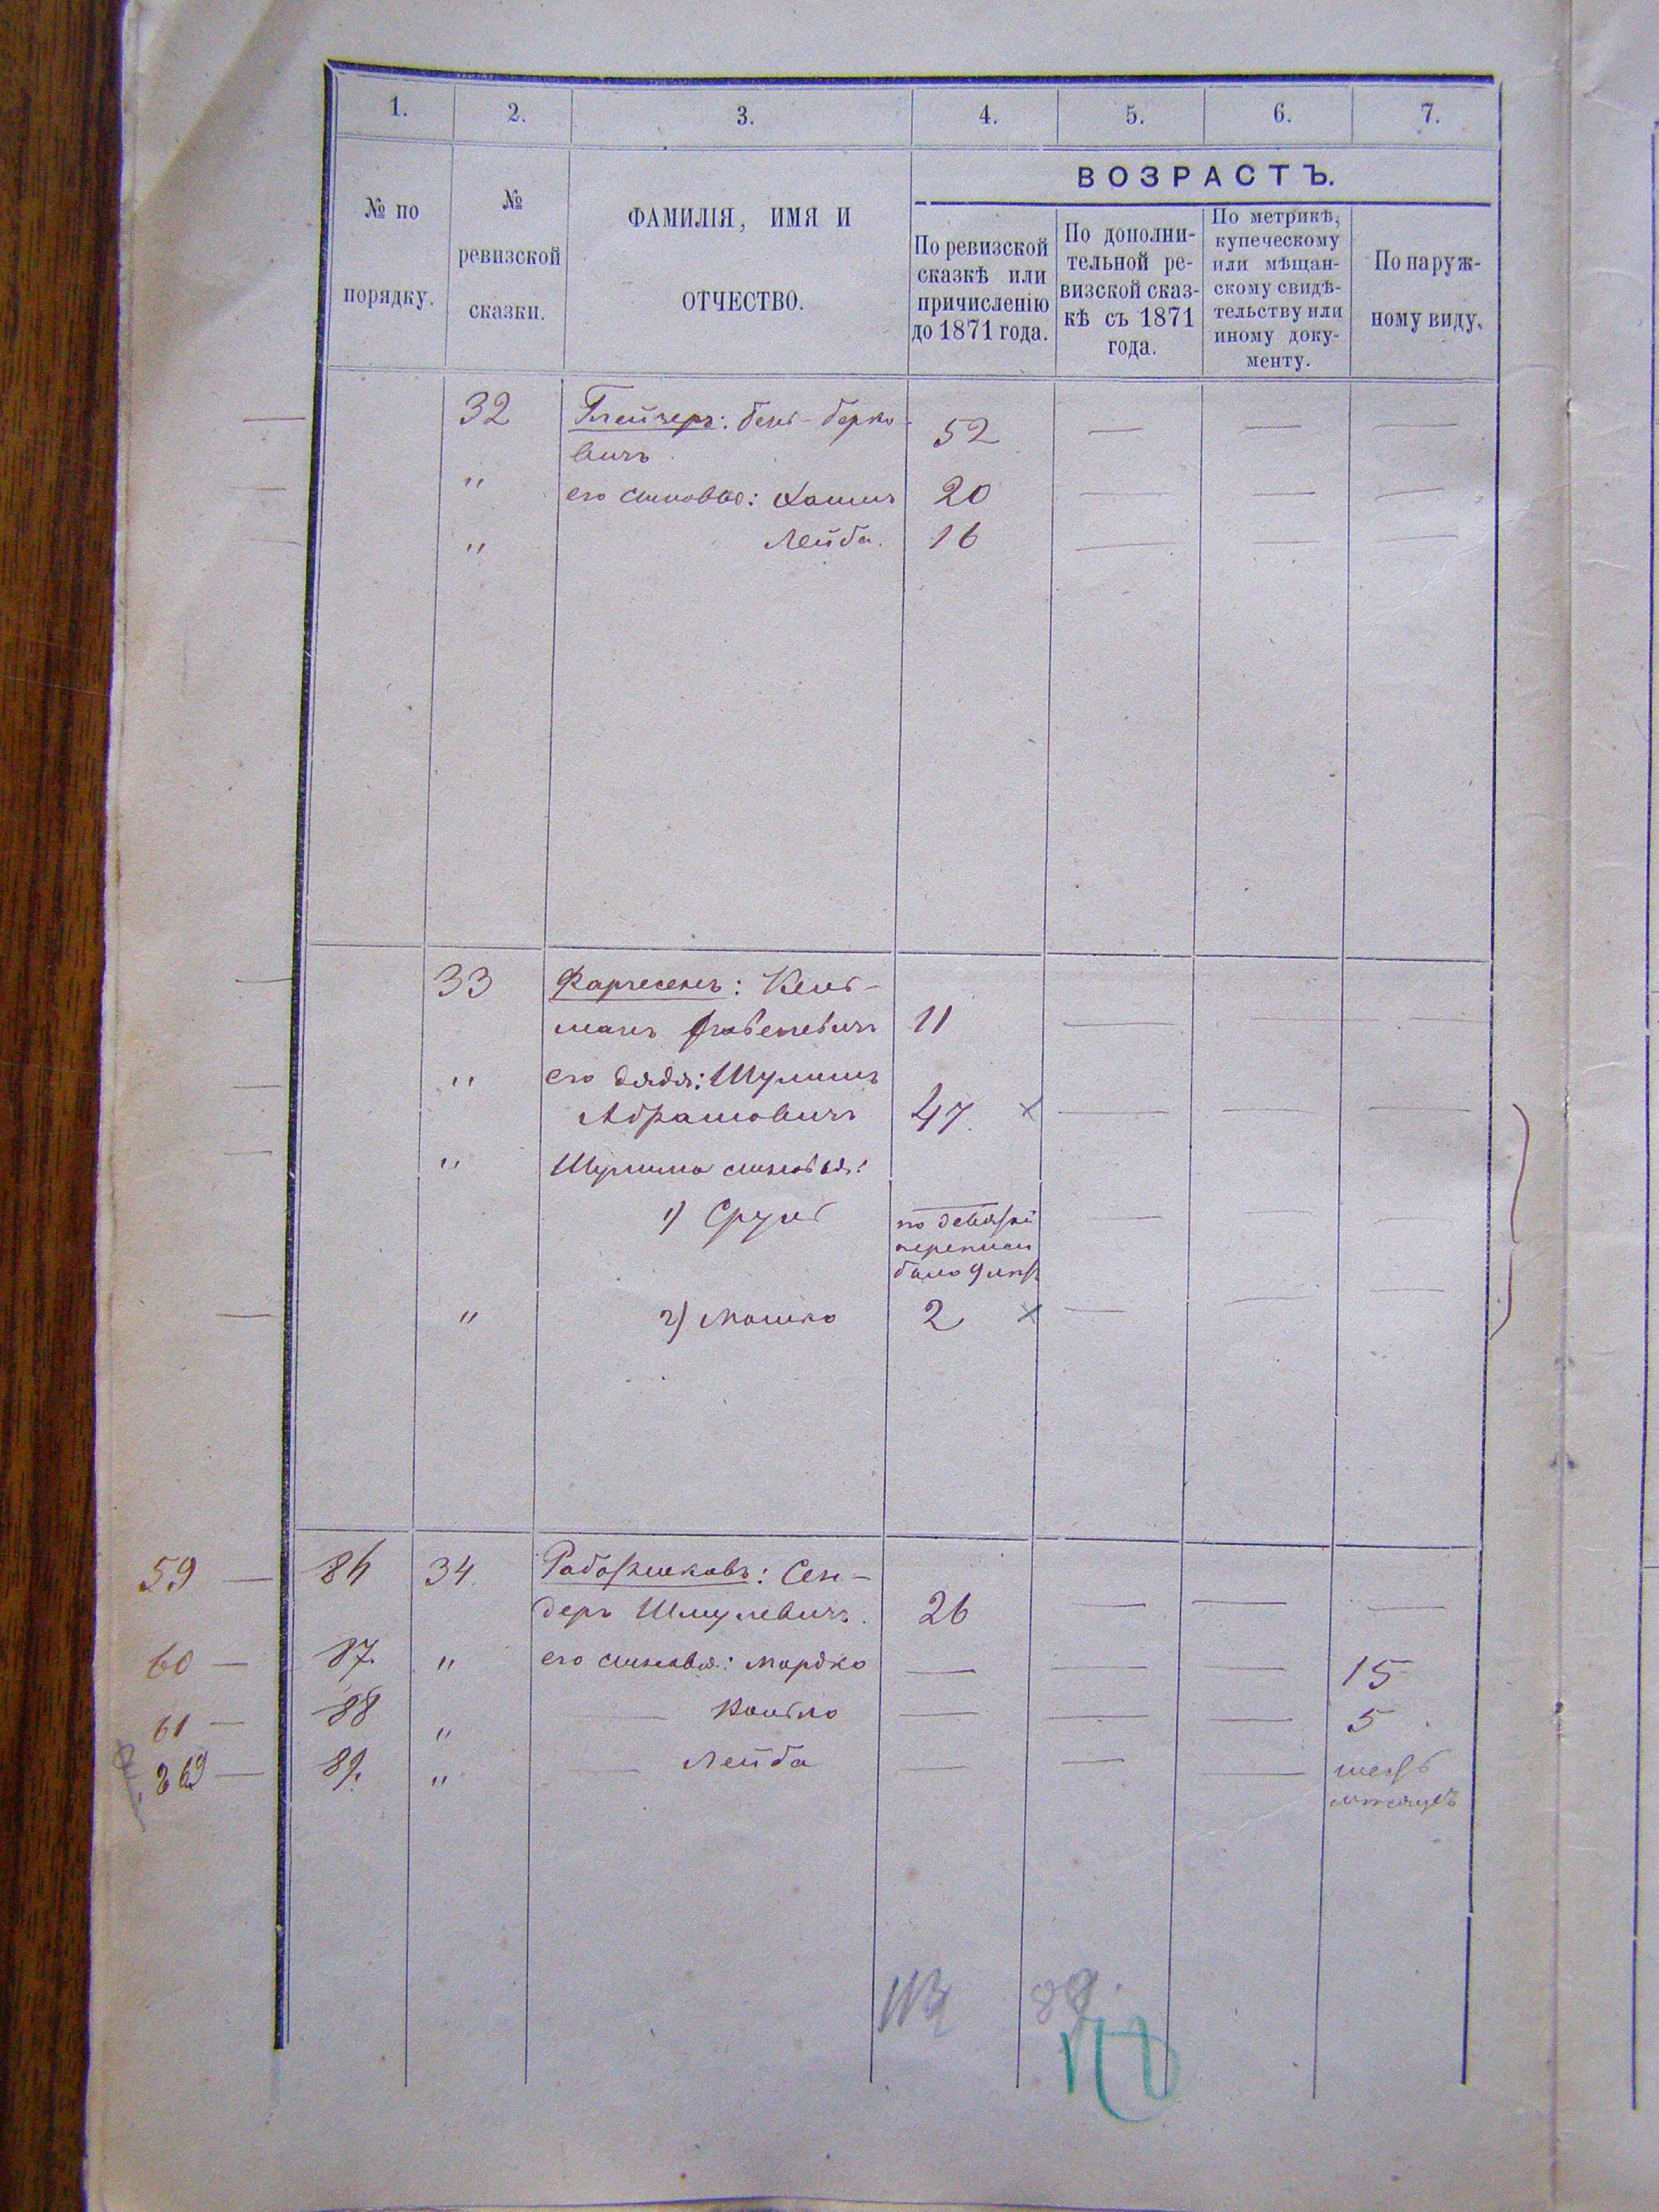 1. 2. 3. 4. 5. 6. 7.
№ по порядку.
№ ревизской сказки.
ФАМИЛІЯ, ИМЯ И
ОТЧЕСТВО.
ВОЗРАСТЪ.
По ревизской
сказкѣ или
причисленію
до 1871 года.
По дополни-
тельной ре-
визской сказ-
кѣ съ 1871
года.
По метрикѣ,
купеческому
или мѣщан-
скому свидѣ-
тельству или
иному доку-
менту.
По наруж-
ному виду.
32 Глейзеръ: Бень-Берко-
вичъ 52 — — —
" его сыновья: Хаимъ 20 — — —
" Лейба. 16 — — —
33 : Кель-
манъ 11 — — —
" его дядя: Шулимъ
Абрамовичъ 47. × — — —
" Шулима сыновья:
1) Сруль по девятой — — —
переписи
было 9 лѣтъ
" 2) Мошко 2 × — — —
59 — 86 34. : Сен-
деръ Шмулевичъ. 26 — — —
60 — 87. " его сыновья: Мордко — — — 15
61 — 88 " — — — — 5
89. " — Лейба — — — шесть
мѣсяцевъ
89.